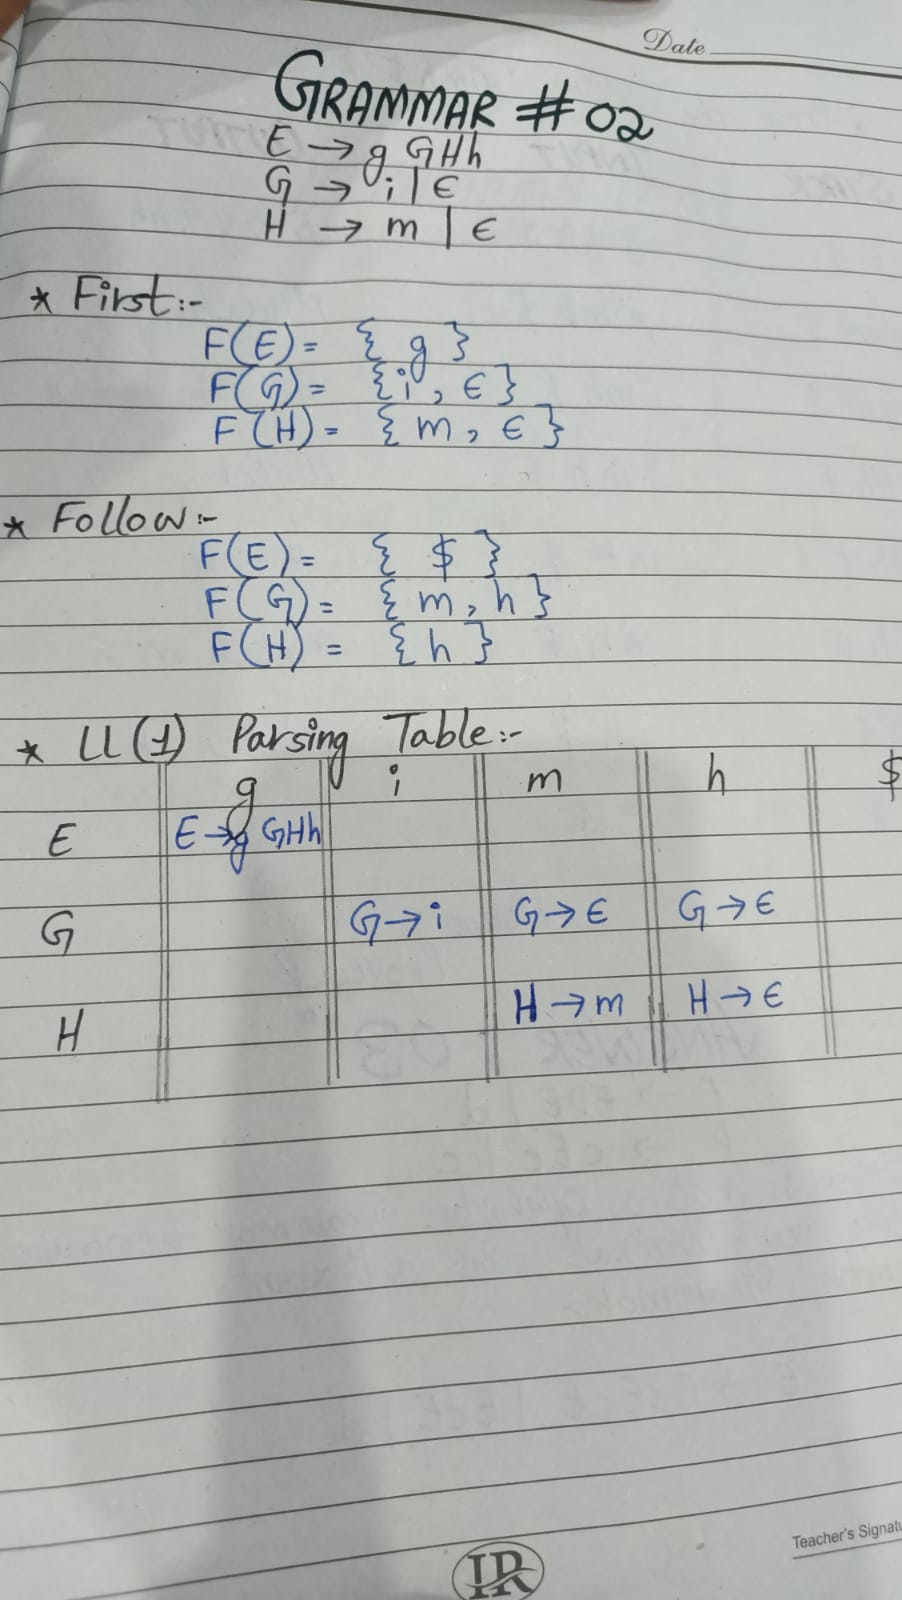 Date
GRAMMAR # 02
E → g GHh
G → i | ϵ
H → m | ϵ
* First:-
F(E) = { g }
F(G) = {i, ϵ}
F(H) = { m, ϵ }
* Follow:-
F(E) = { $ }
F(G) = { m, h }
F(H) = {h}
* LL(1) Parsing Table:-
g i m h $
E E→g GHh
G G→i G→ϵ G→ϵ
H H→m H→ϵ
Teacher's Signatu
IR